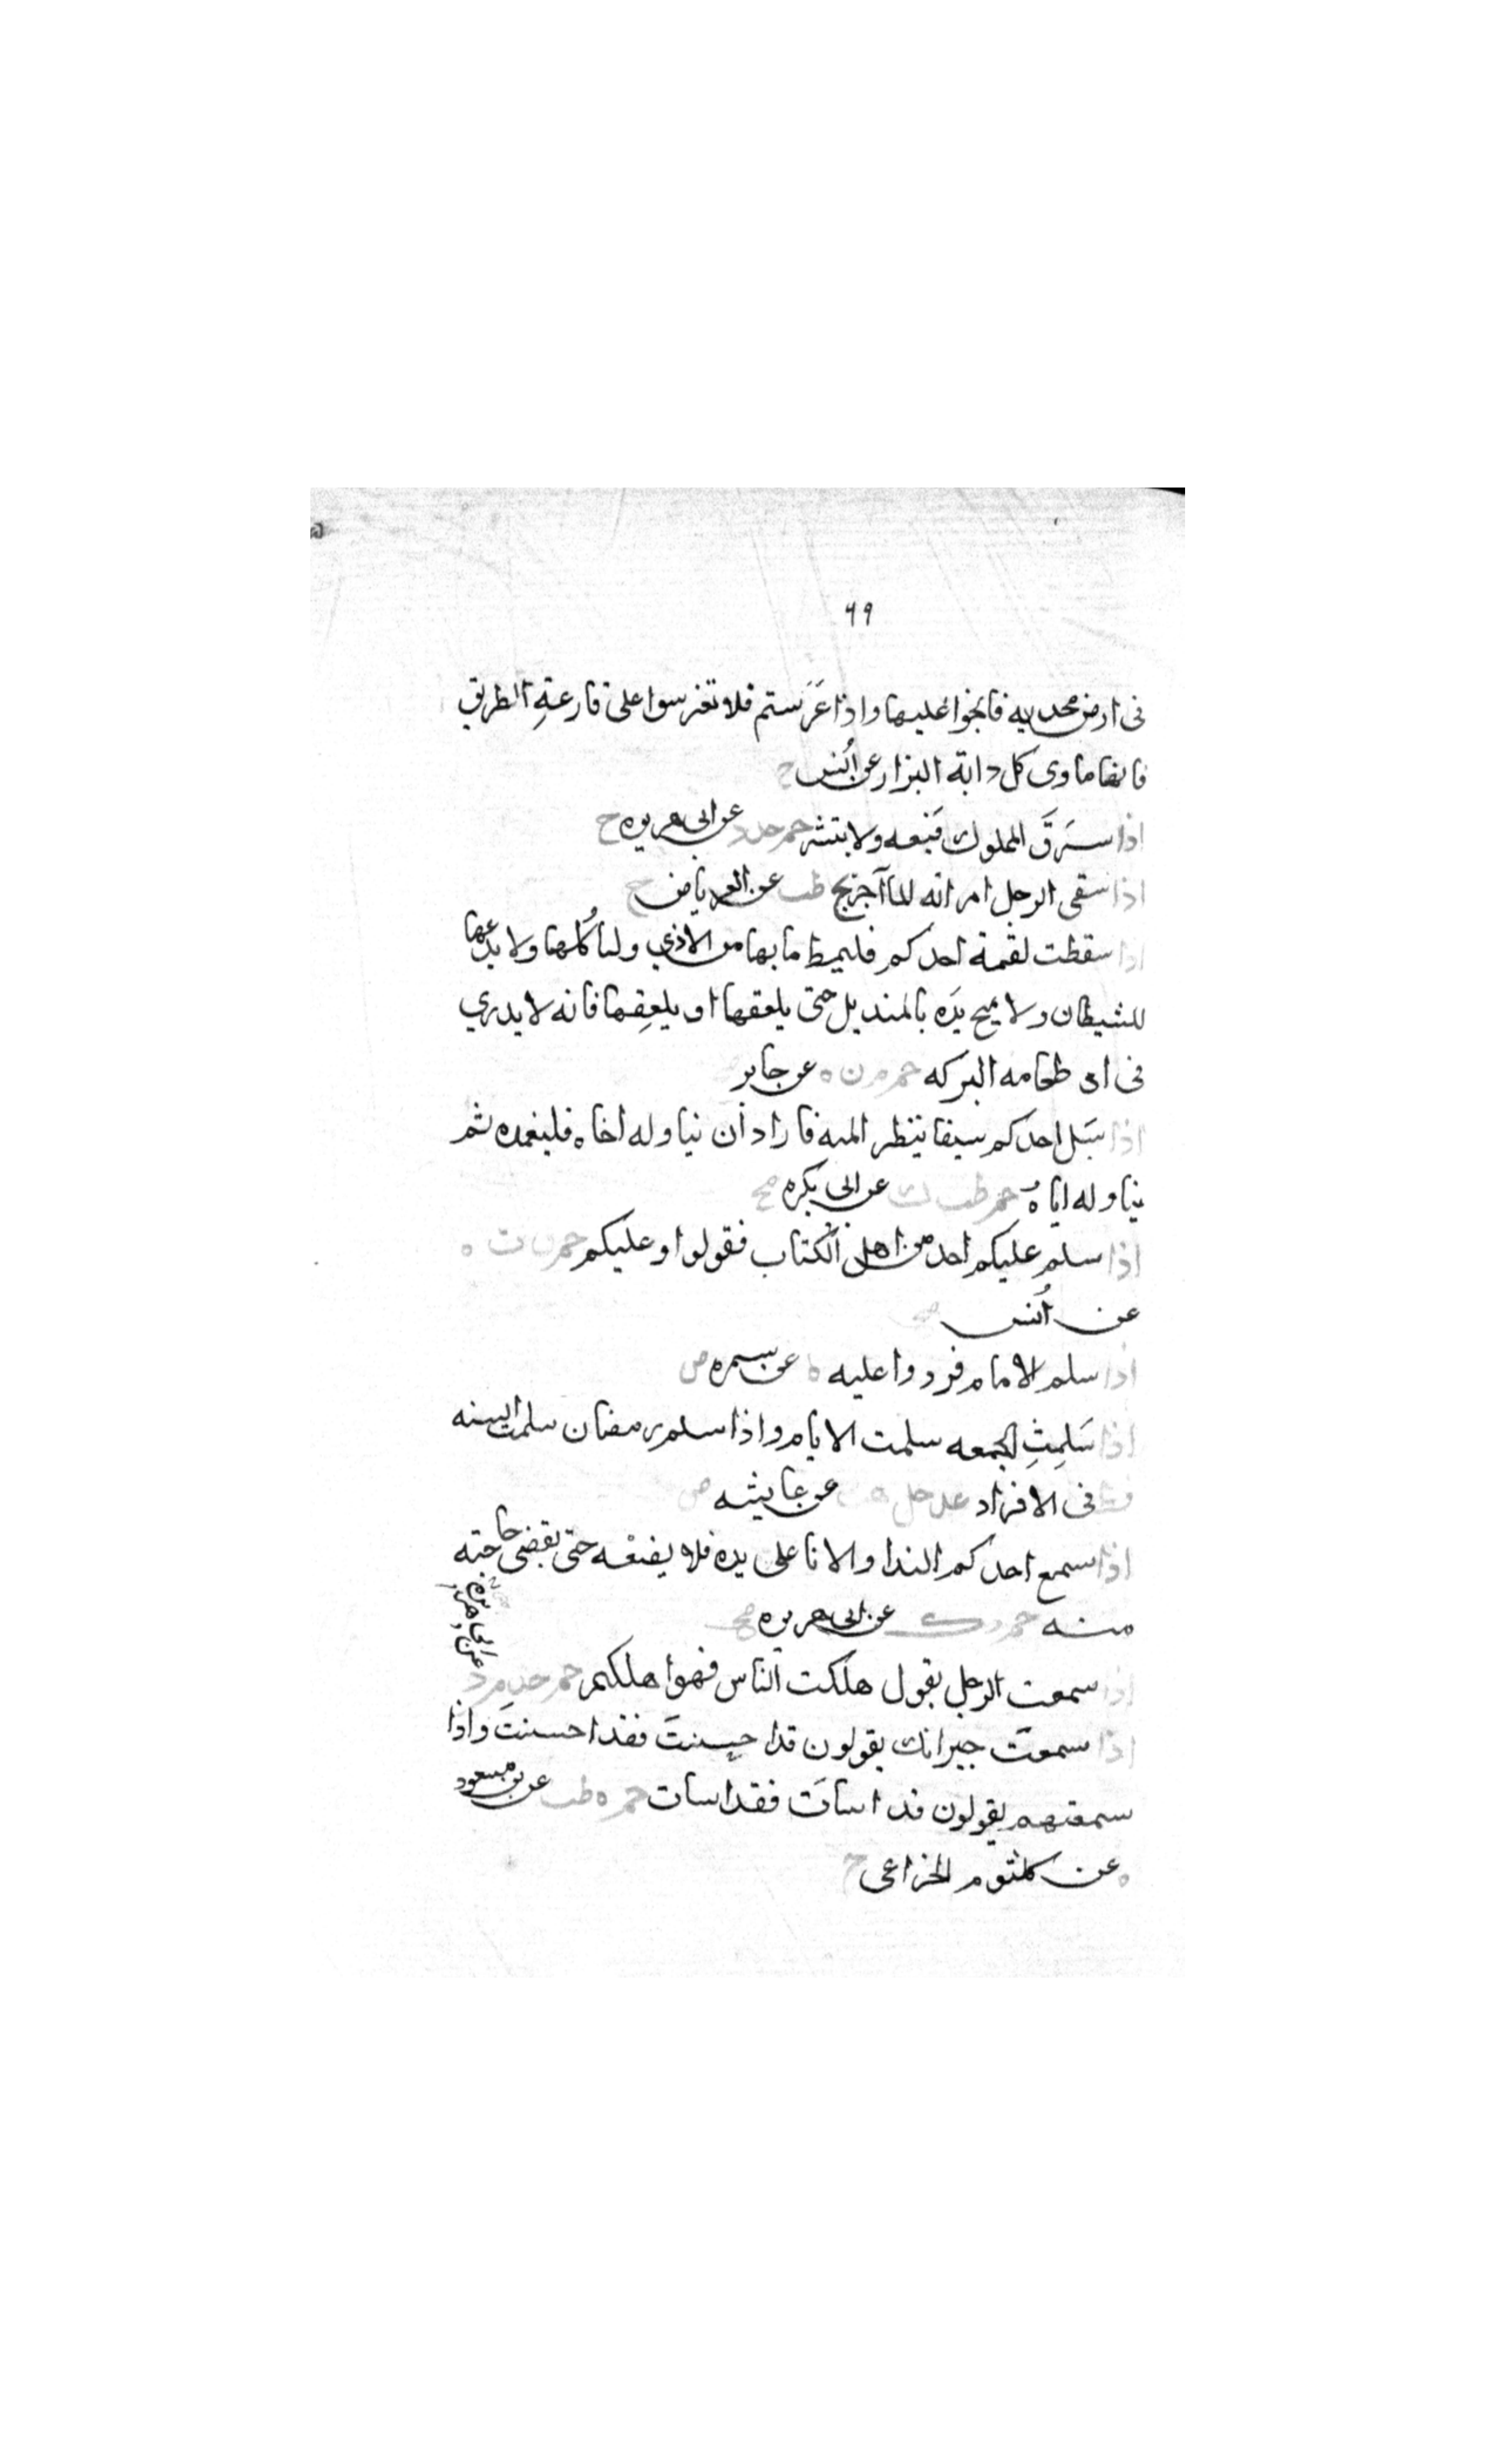 ٦٩
فى ارض مجدبه فانجوا عليها واذا عَرَستم فلا تعرسوا على قارعةِ الطريق
فانها ماوى كل دابة البزار عن أنس ح
اذا سَرَقَ المملوك فبعه ولا بنش حم خد د عن ابى هريره ح
اذا سقى الرجل امراته الماآ اجر طب عن العرباض ح
اذا سقطت لقمة احدكم فليمط ما بها من الاذي ولياكلها ولا يدعها
للشيطان ولا يمسح يدَه بالمنديل حتى يلعقها او يلعِقها فانه لا يدري
فى اى طعامه البركه حم م ن ه عن جابر
اذا سَل احدكم سيفا ينظر اليه فاراد أن يناوله اخاه فليغمده ثم
يناوله اياهُ حم طب ك عن ابى بكره صح
اذا سلم عليكم احد من اهل الكتاب فقولوا وعليكم حم ق ت ه
عن أنس صح
اذا سلم الامام فردوا عليه ه عن سمره ض
اذا سَلِمتِ الجمعه سلمت الايام واذا سلم رمضان سلمت السنه
قط فى الافراد عد حل هب عن عايشه ض
اذا سمع احدكم الندا والانا على يده فلا يضعْه حتى يقضى حاجته
منه حم د ك عن ابى هريره صح
اذا سمعت الرجل يقول هلكت الناس فهوا هلكهم حم خد م د
عن ابى هريره
اذا سمعتَ جيرانك يقولون قد احسنتَ فقد احسنتَ واذا
سمعتهم يقولون قد اساتَ فقد اسات حم ه طب عن بن مسعود
ه عن كلثوم الخزاعى ح